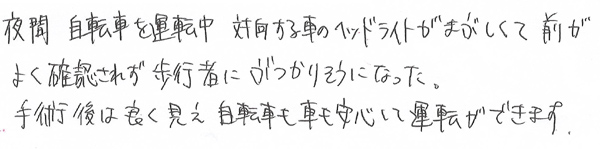 夜間 自転車を運転中 対向する車のヘッドライトがまぶしくて 前が
よく確認されず 歩行者に ぶつかりそうになった。
手術後は良く見え 自転車も車も安心して運転ができます.